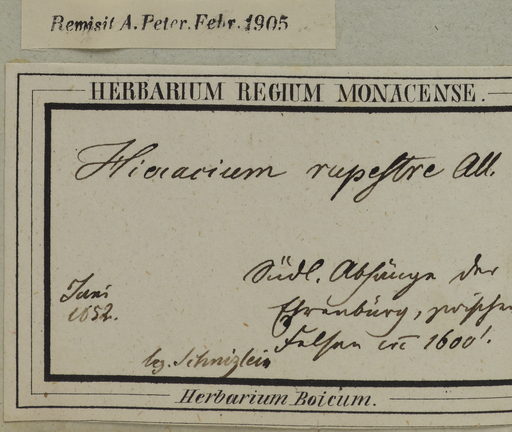 Remisit A. Peter. Febr. 1905
HERBARIUM REGIUM MONACENSE.
Hieracium rupestre All.
Südl. Abhänge der
Juni
1852.
Ehrenbürg, zwischen
Felsen 1600'.
lg. Schnizlein
Herbarium Boicum.